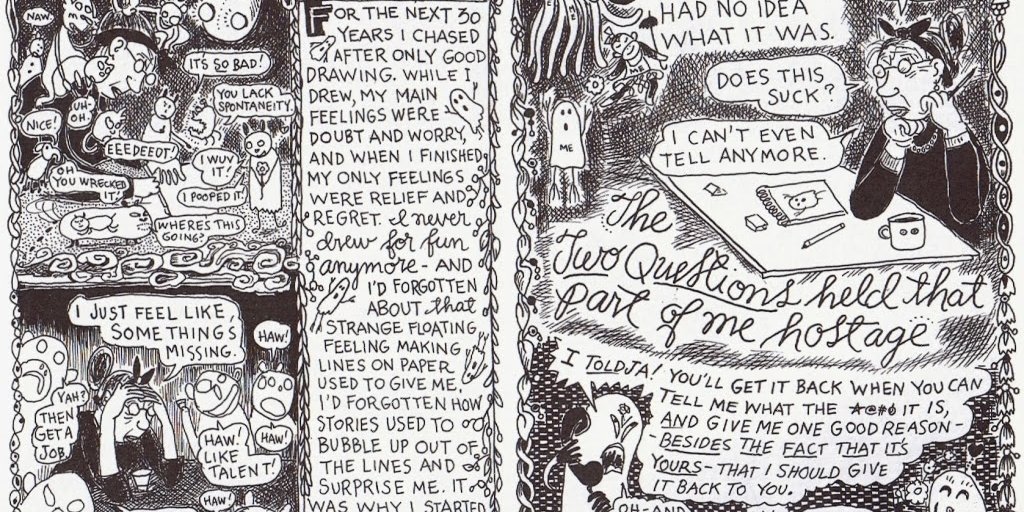 NAW.
IT'S SO BAD!
YOU LACK
SPONTANEITY.
UH-
OH.
NICE!
EEEDEEOT!
I WUV
IT!
OH
YOU WRECKED
IT.
I POOPED IT.
WHERE'S THIS
GOING?
I JUST FEEL LIKE
SOMETHINGS
MISSING.
HAW!
YAH?
THEN
GET A
JOB.
HAW!
LIKE
TALENT!
HAW!
HAW!
FOR THE NEXT 30
YEARS I CHASED
AFTER ONLY GOOD
DRAWING. WHILE I
DREW, MY MAIN
FEELINGS WERE
DOUBT AND WORRY,
AND WHEN I FINISHED
MY ONLY FEELINGS
WERE RELIEF AND
REGRET. I never
drew for fun
anymore - AND
I'D FORGOTTEN
ABOUT that
STRANGE FLOATING
FEELING MAKING
LINES ON PAPER
USED TO GIVE ME,
I'D FORGOTTEN HOW
STORIES USED TO
BUBBLE UP OUT OF
THE LINES AND
SURPRISE ME. IT
WAS WHY I STARTED
HAD NO IDEA
WHAT IT WAS.
ME
DOES THIS
SUCK?
I CAN'T EVEN
TELL ANYMORE.
ME
The
Two Questions held that
part of me hostage
I TOLDJA! YOU'LL GET IT BACK WHEN YOU CAN
TELL ME WHAT THE *@#⚬ IT IS,
AND GIVE ME ONE GOOD REASON-
-BESIDES THE FACT THAT IT'S
YOURS- THAT I SHOULD GIVE
IT BACK TO YOU.
OH-AND